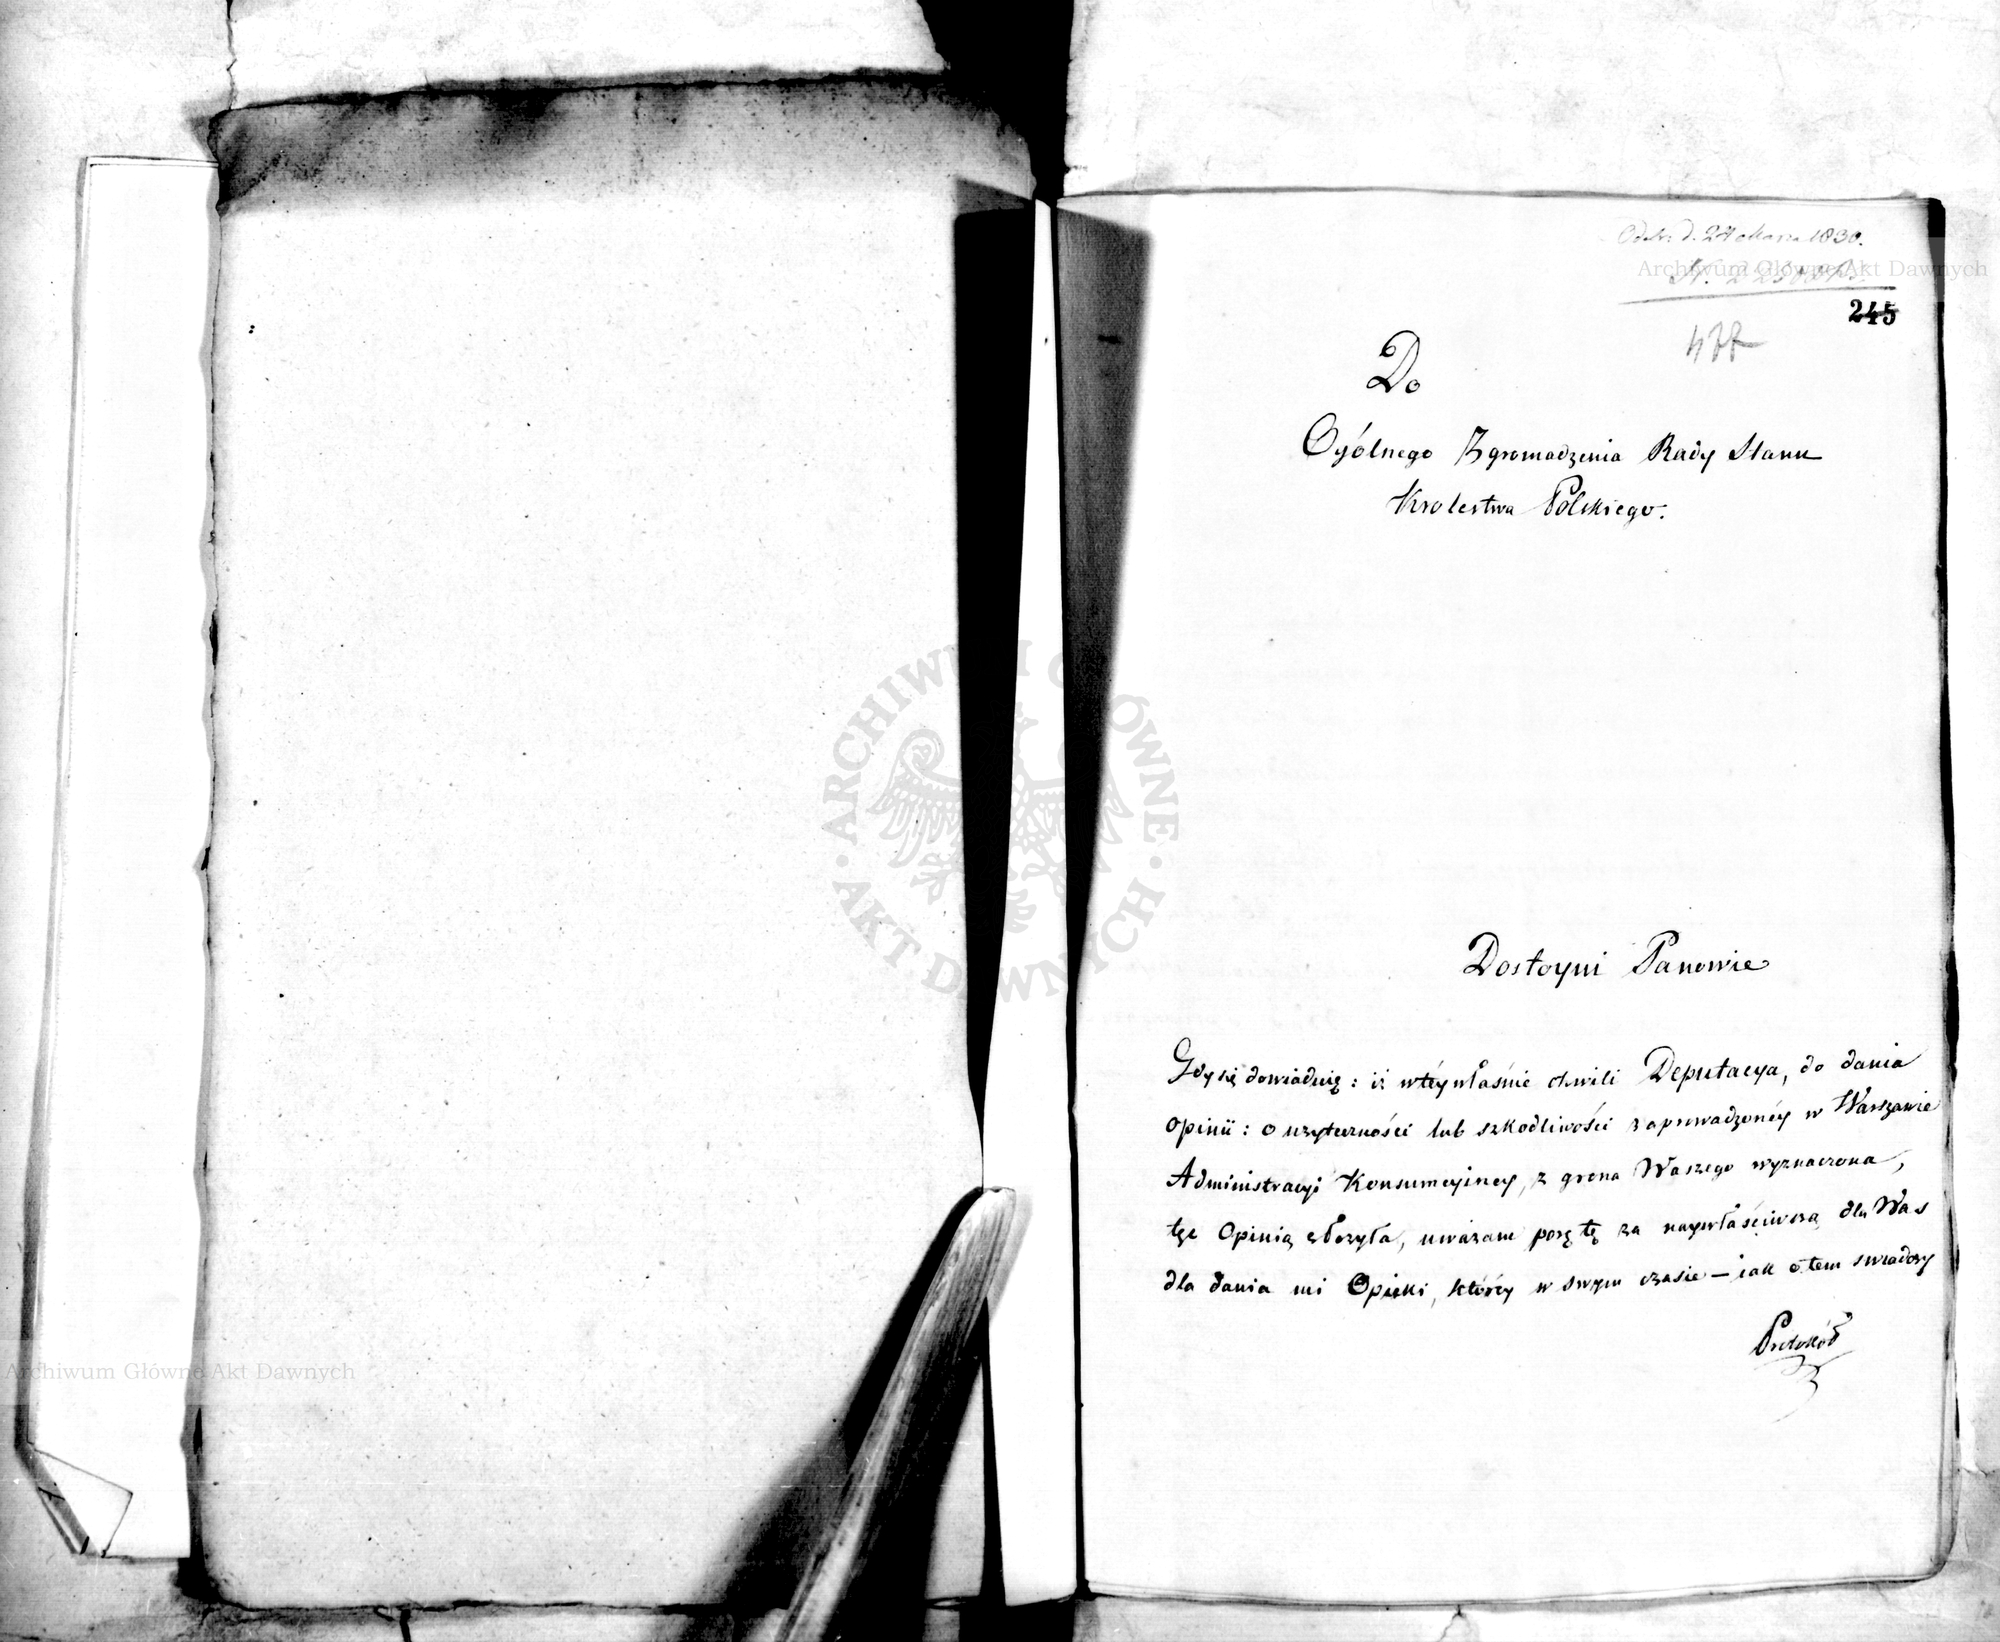 Odebr: d. 24 Marca 1830.
245
Do
Ogólnego Zgromadzenia Rady Stanu
Krolestwa Polskiego.
Dostoyni Panowie
Gdy się dowiaduię: iż wtéy właśnie chwili Deputacya, do dania
opinii: o użyteczności lub szkodliwości zaprowadzonéy w Warszawie
Administracyi Konsumcyiney, z grona Waszego wyznaczona,
tęż Opinią złożyła, uważam porę tę za naywłaściwszą dla Was
dla dania mi Opieki, któréy w swym czasie – iak o tem swiadczy
Protokół
ARCHIWUM GŁÓWNE AKT DAWNYCH
Archiwum Główne Akt Dawnych
Archiwum Główne Akt Dawnych